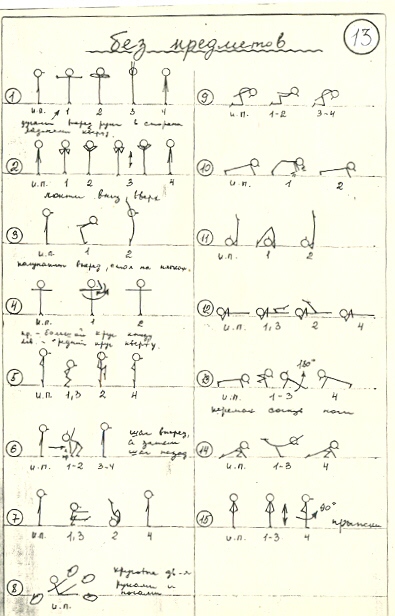 без предметов
13
1
и.п. 1 2 3 4
вперед руки в стороны
2
и.п. 1 2 3 4
локти вниз, вверх
3
и.п. 1 2
полушпагат вперед, на
4
и.п. 1 2
пр. - большой круг книзу
лев. - средний круг кверху.
5
и.п. 1,3 2 4
6
и.п. 1-2 3-4
шаг вперед,
а затем
шаг назад
7
и.п. 1,3 2 4
8
и.п.
круговые дв-я
руками и
ногами
9
и.п. 1-2 3-4
10
и.п. 1 2
11
и.п. 1 2
12
и.п. 1,3 2 4
13
180°
и.п. 1-3 4
перемах согнув ноги
14
и.п. 1-3 4
15
90°
и.п. 1-3 4
прыжки